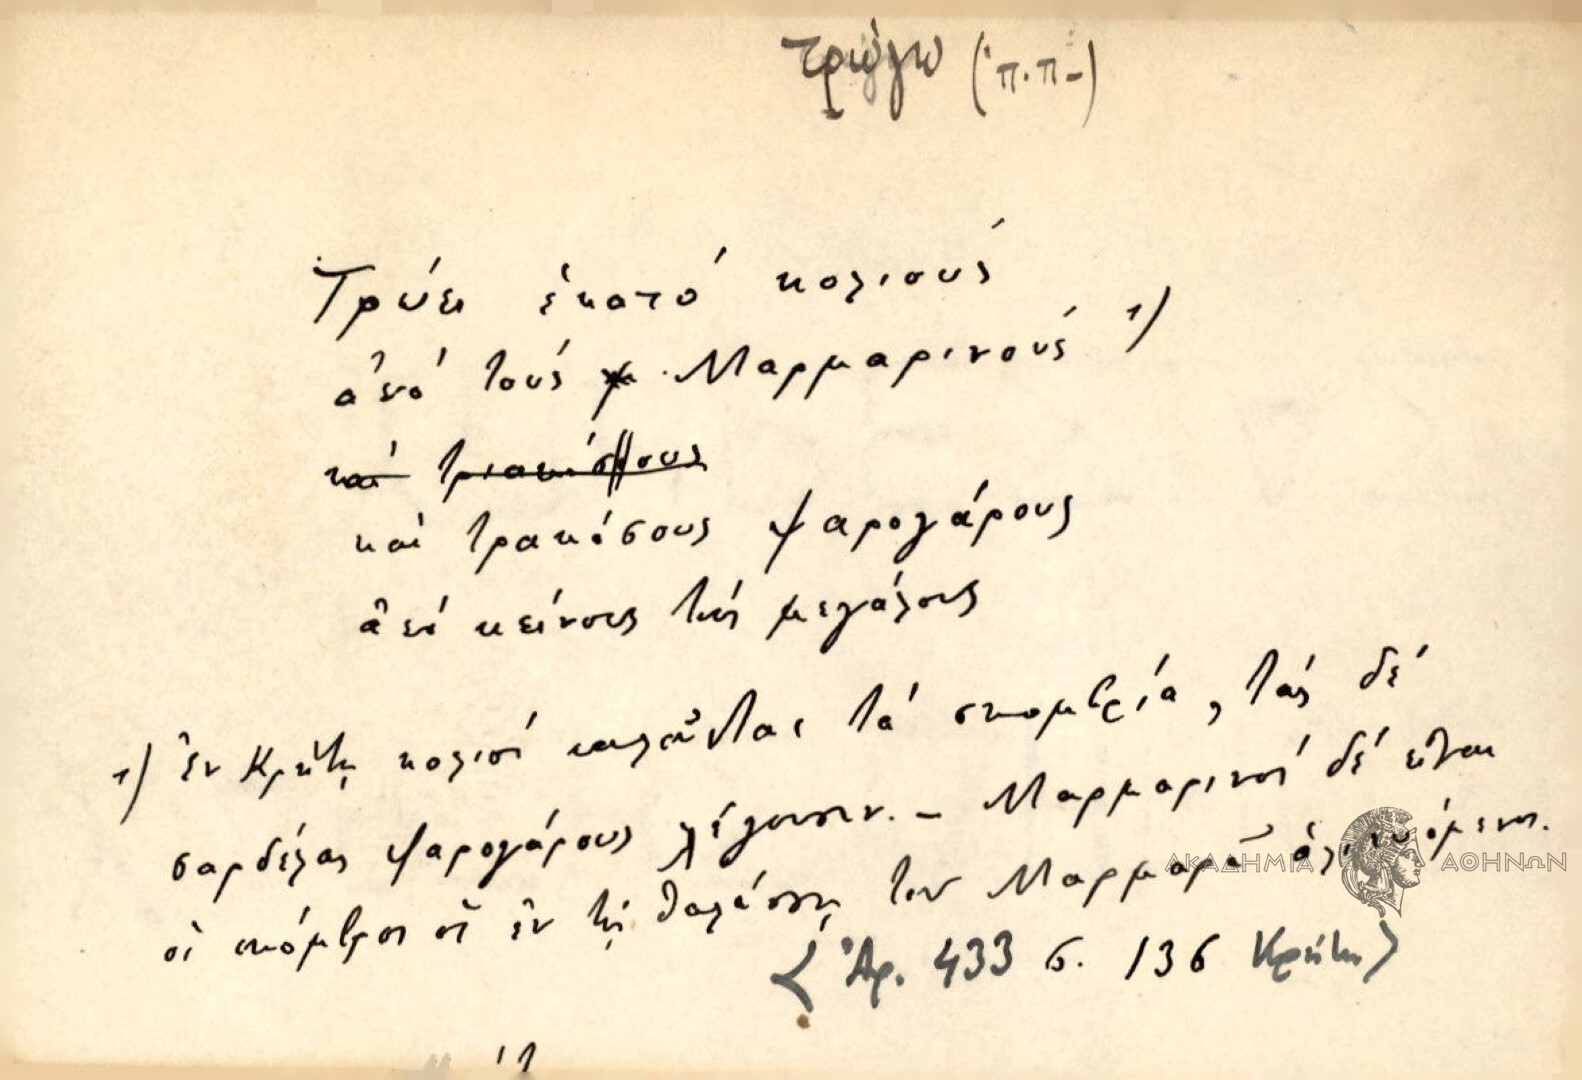 τρώγω (π.π-)
Τρώει ἑκατό κολιούς
ἀπό τούς Μαρμαρινούς 1)
και τριακόσους
καί τρακόσους ψαρογάρους
ἀπό κείνους τούς μεγάλους
1) Ἐν Κρήτῃ κολιοί καλοῦνται τά σκομβρία, τάς δέ
σαρδέλας ψαρογάρους λέγουσιν. – Μαρμαρινοί δέ εἶναι
οἱ σκόμβροι οἱ ἐν τῇ θαλάσσῃ τοῦ Μαρμαρᾶ ἁλιευόμενοι.
ΑΚΑΔΗΜΙΑ ΑΘΗΝΩΝ
<Ἀρ. 433 σ. 136 Κρήτη>